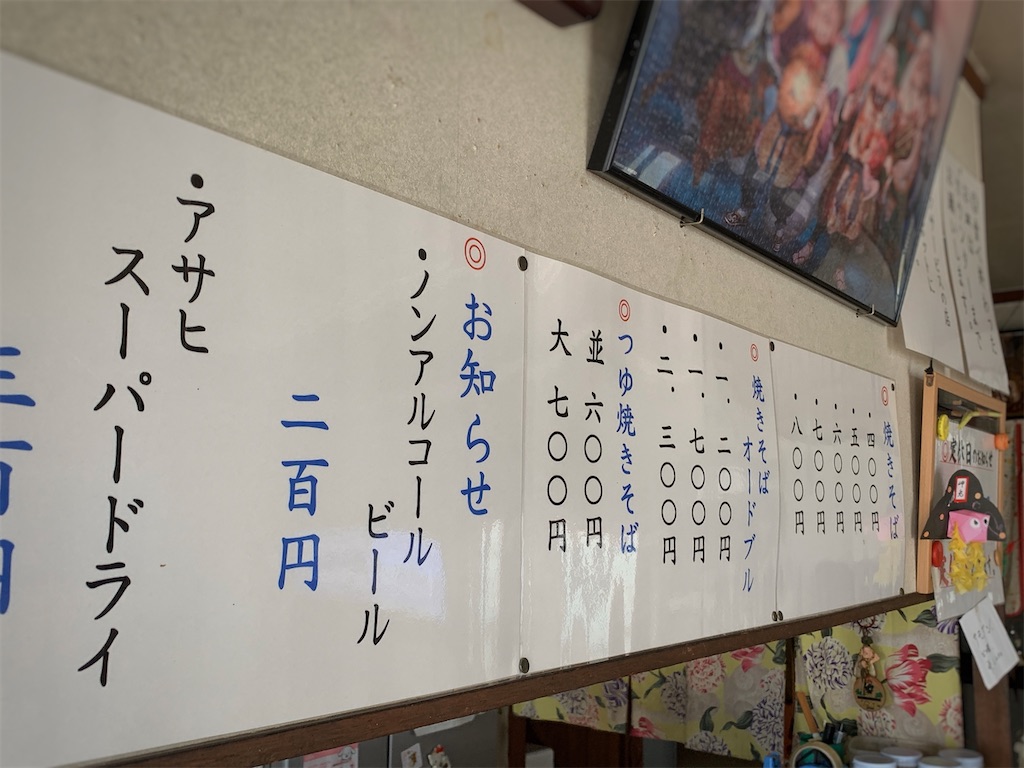 ◎焼きそば
・四〇〇円
・五〇〇円
・六〇〇円
・七〇〇円
・八〇〇円
◎焼きそば
オードブル
・一.二〇〇円
・一.七〇〇円
・二.三〇〇円
◎つゆ焼きそば
並 六〇〇円
大 七〇〇円
◎お知らせ
・ノンアルコール
ビール
二百円
・アサヒ
スーパードライ
三百円